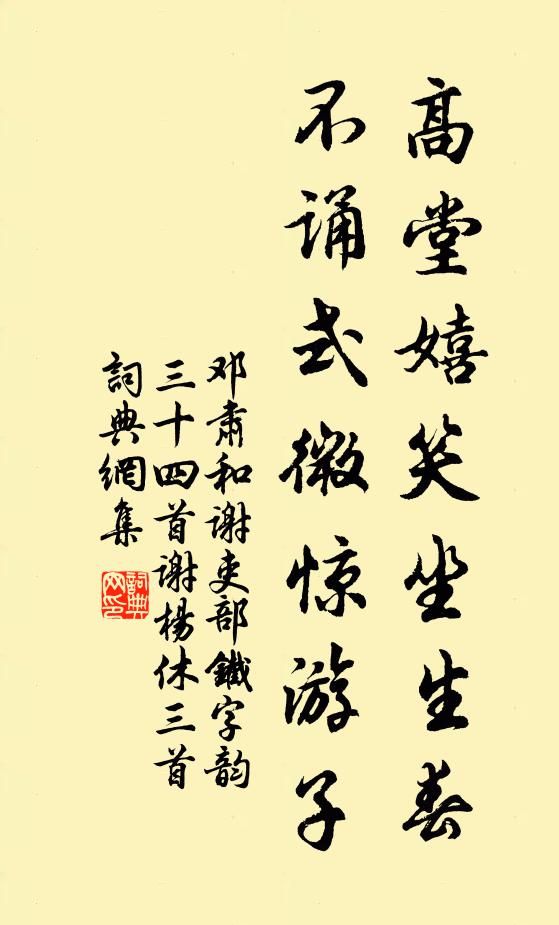 高堂嬉笑坐生春
不诵式微惊游子
邓肃和谢吏部鐵字韵
三十四首谢楊休三首
詞典網集
詞典
网印